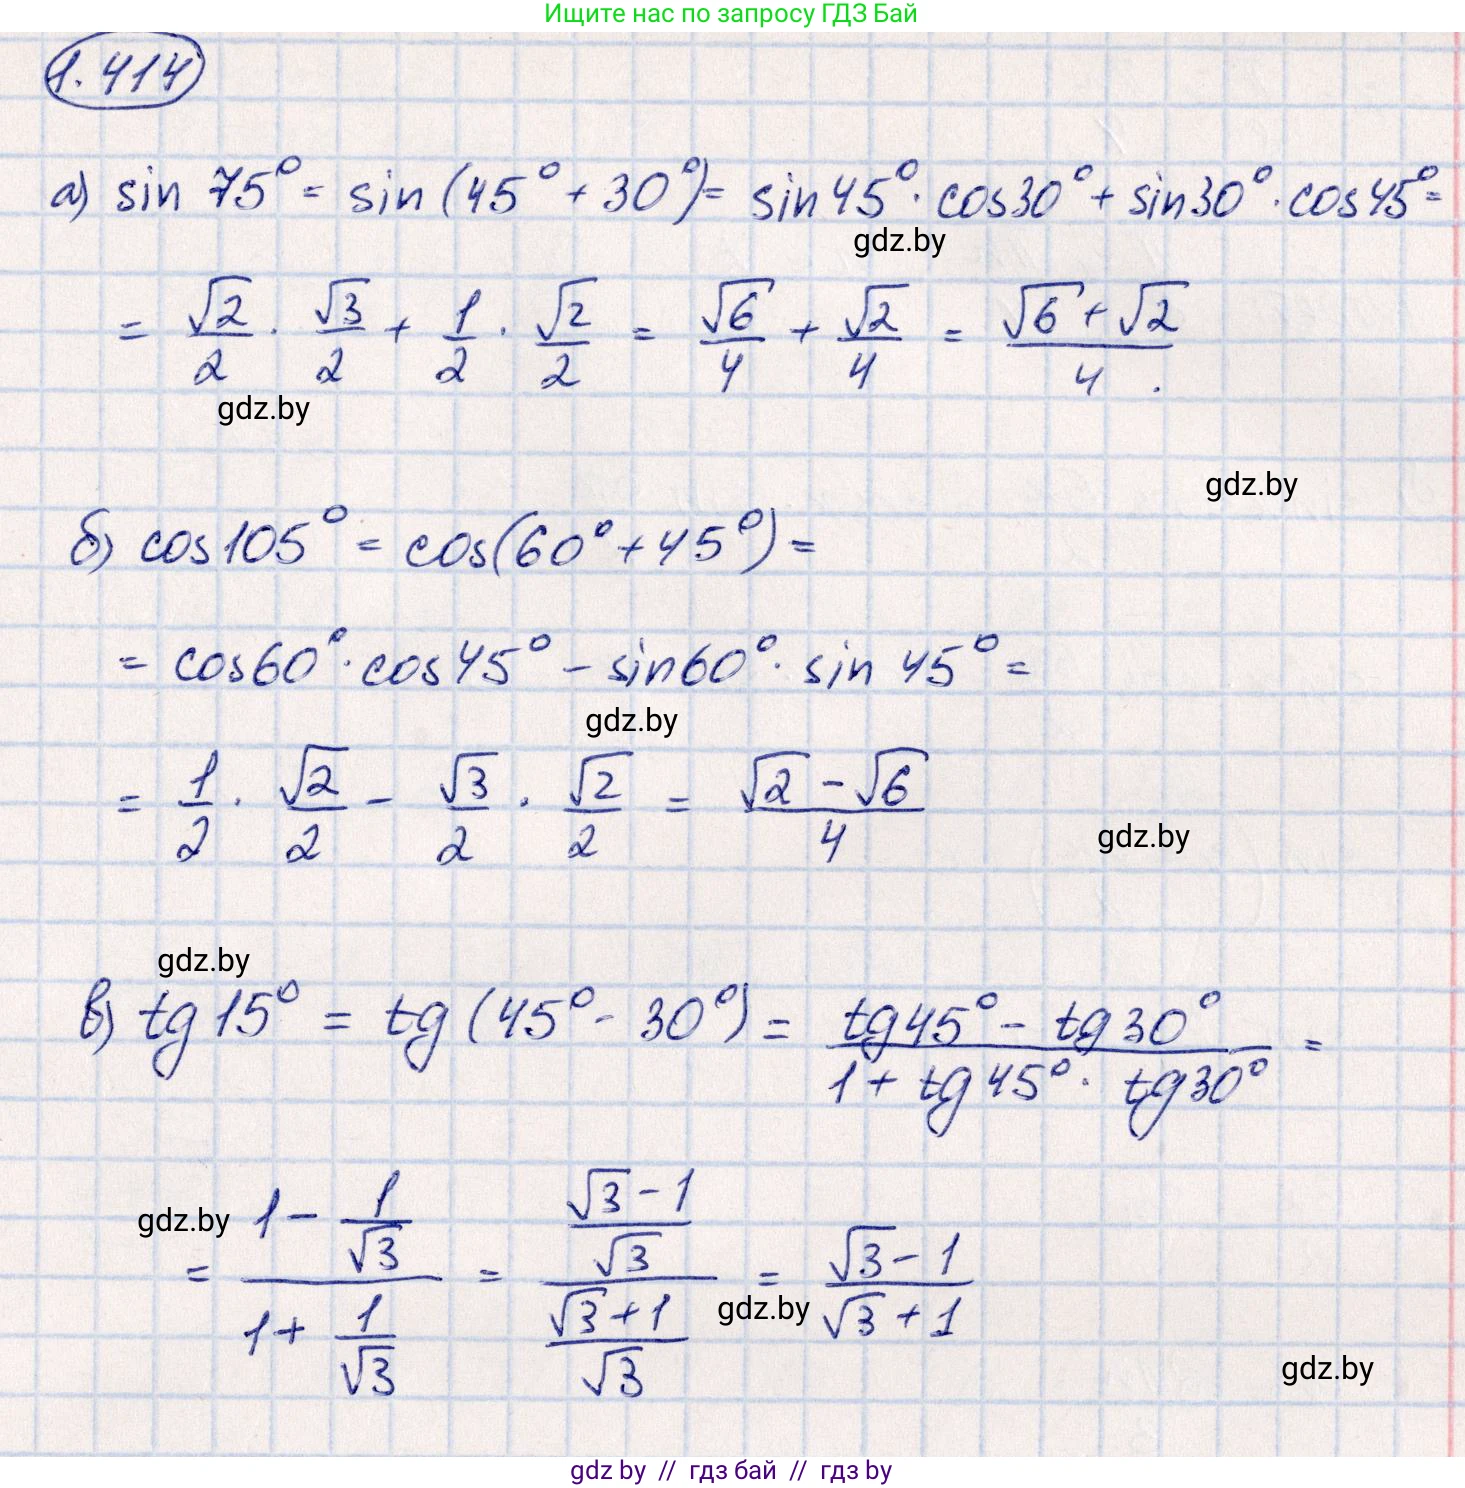 Ищите нас по запросу ГДЗ Бай
1.414
а) sin 75° = sin (45° + 30°) = sin 45° · cos 30° + sin 30° · cos 45° =
gdz.by
= √2/2 · √3/2 + 1/2 · √2/2 = √6/4 + √2/4 = (√6 + √2)/4 .
gdz.by
gdz.by
б) cos 105° = cos (60° + 45°) =
= cos 60° · cos 45° - sin 60° · sin 45° =
gdz.by
= 1/2 · √2/2 - √3/2 · √2/2 = (√2 - √6)/4
gdz.by
gdz.by
в) tg 15° = tg (45° - 30°) = (tg 45° - tg 30°)/(1 + tg 45° · tg 30°) =
gdz.by
= (1 - 1/√3)/(1 + 1/√3) = ((√3 - 1)/√3)/((√3 + 1)/√3) = (√3 - 1)/(√3 + 1)
gdz.by
gdz.by
gdz by // гдз бай // гдз by